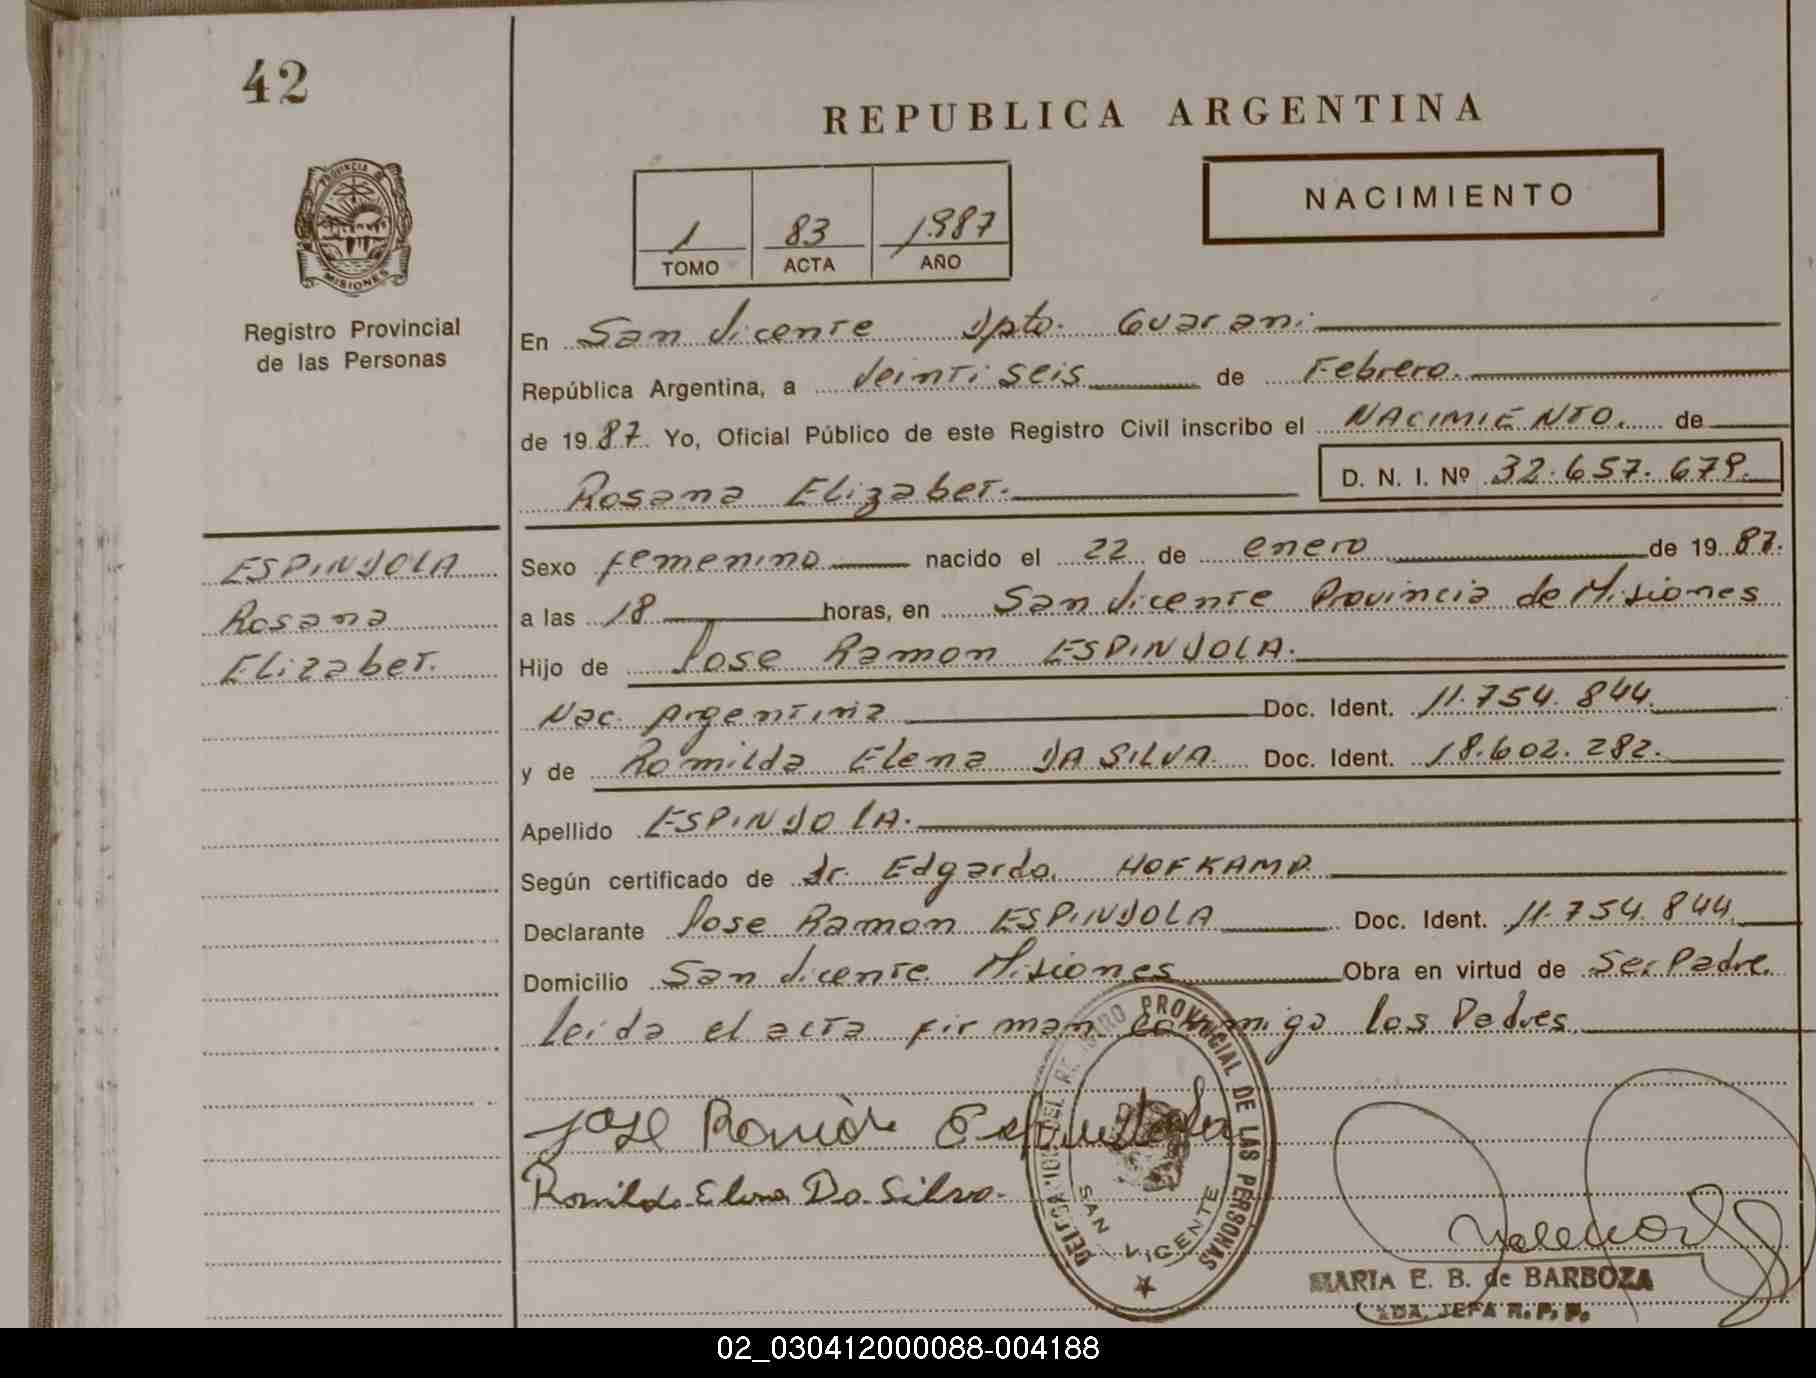 42
REPUBLICA ARGENTINA
NACIMIENTO
1 83 1987
TOMO ACTA AÑO
PROVINCIA DE MISIONES
Registro Provincial
de las Personas
En San Vicente Dpto. Guarani
República Argentina, a Veintiseis de Febrero.
de 1987. Yo, Oficial Público de este Registro Civil inscribo el NACIMIENTO. de
Rosana Elizabet. D. N. I. Nº 32.657.679.
ESPINDOLA
Rosana
Elizabet.
Sexo femenino nacido el 22 de enero de 1987.
a las 18 horas, en San Vicente Provincia de Misiones
Hijo de Jose Ramon ESPINDOLA.
Nac. Argentina Doc. Ident. 11.754.844.
y de Romilda Elena DA SILVA. Doc. Ident. 18.602.282.
Apellido ESPINDOLA.
Según certificado de dr. Edgardo HOFKAMP.
Declarante Jose Ramon ESPINDOLA Doc. Ident. 11.754.844.
Domicilio San Vicente Misiones Obra en virtud de Ser Padre.
leida el acta firman conmigo los Padres
Jose Ramòn Espindola
Romilda Elena Da Silva.
DEL REGISTRO PROVINCIAL DE LAS PERSONAS
SAN VICENTE
MARIA E. B. de BARBOZA
JEFA R. P. P.
02_030412000088-004188